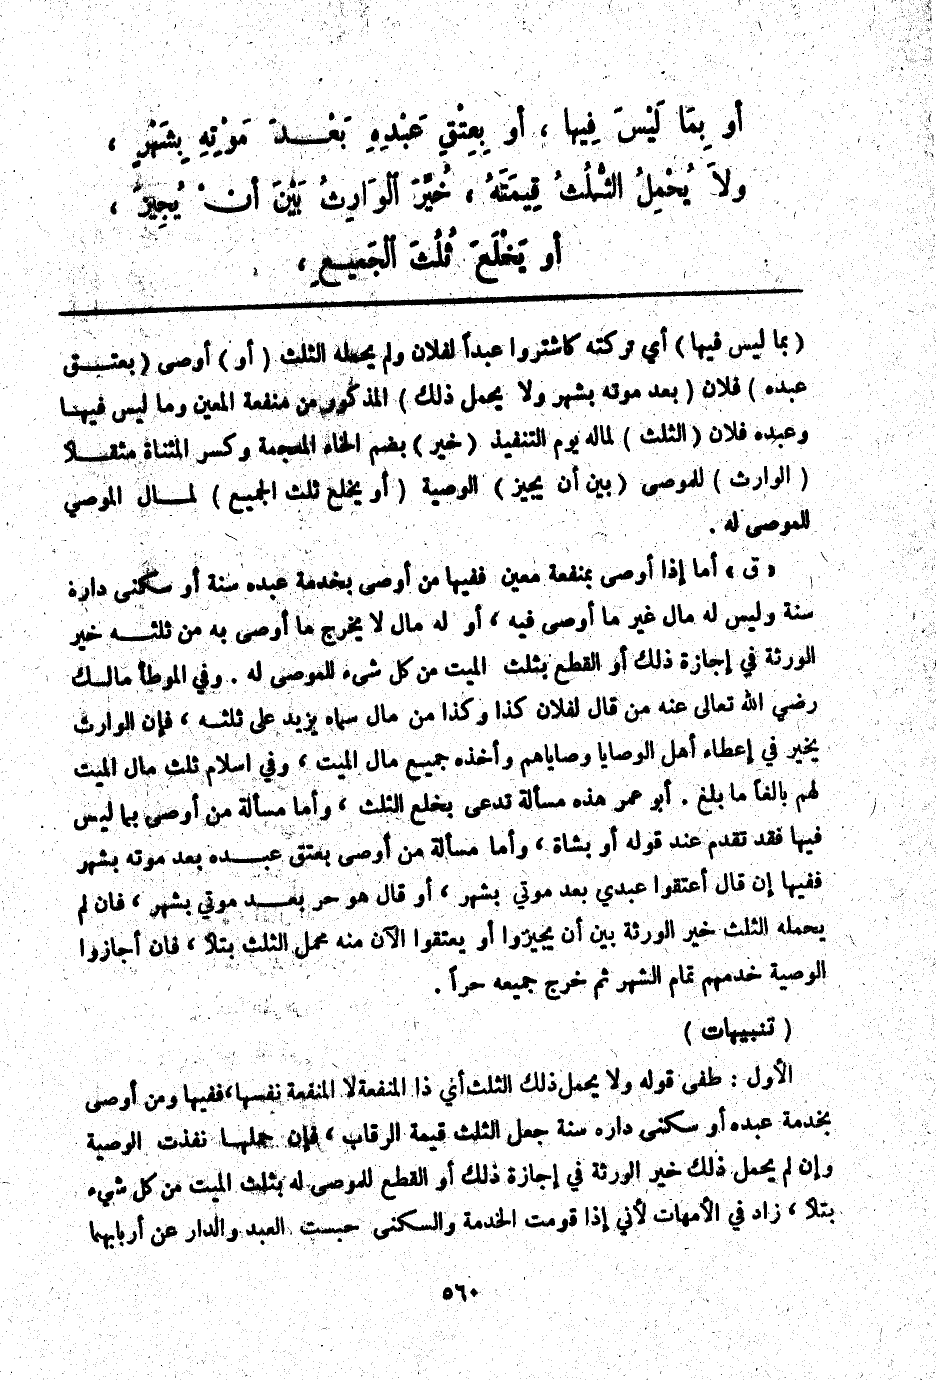 أو بِمَا لَيْسَ فِيها ، أو بِعِتْقِ عَبْدِهِ بَعْـــدَ مَوْتِهِ بِشَهْرٍ ،
ولاَ يُحْمِلُ الثُّلُثُ قِيمَتَهُ ، خُيِّرَ ٱلوَارِثُ بَيْنَ أنْ يُجِيزَ ،
أو يَخْلَعَ ثُلُثَ ٱلجَمِيعِ ،
( بما ليس فيها ) أي تركته كاشتروا عبداً لفلان ولم يحمله الثلث ( أو ) أوصى ( بعتـــق
عبده ) فلان ( بعد موته بشهر ولا يحمل ذلك ) المذكور من منفعة المعين وما ليس فيهـا
وعبده فلان ( الثلث ) لماله يوم التنفيذ ( خير ) بضم الخاء المعجمة وكسر المثناة مثقـــلاً
( الوارث ) للموصى ( بين أن يجيز ) الوصية ( أو يخلع ثلث الجميع ) لمـــال الموصي
للموصى له .
« ق » أما إذا أوصى بمنفعة معين ففيها من أوصى بخدمة عبده سنة أو سكنى داره
سنة وليس له مال غير ما أوصى فيه ، أو له مال لا يخرج ما أوصى به من ثلثـــه خير
الورثة في إجازة ذلك أو القطع بثلث الميت من كل شيء للموصى له . وفي الموطأ مالـك
رضي الله تعالى عنه من قال لفلان كذا وكذا من مال سماه يزيد على ثلثـه ، فإن الوارث
يخير في إعطاء أهل الوصايا وصاياهم وأخذه جميع مال الميت ، وفي اسلام ثلث مال الميت
لهم بالغاً ما بلغ . أبو عمر هذه مسألة تدعى بخلع الثلث ، وأما مسألة من أوصى بما ليس
فيها فقد تقدم عند قوله أو بشاة ، وأما مسألة من أوصى بعتق عبـــده بعد موته بشهر
ففيها إن قال أعتقوا عبدي بعد موتي بشهر ، أو قال هو حر بعـــد موتي بشهر ، فان لم
يحمله الثلث خير الورثة بين أن يجيزوا أو يعتقوا الآن منه محمل الثلث بتلاً ، فان أجازوا
الوصية خدمهم تمام الشهر ثم خرج جميعه حراً .
( تنبيهات )
الأول : طفى قوله ولا يحمل ذلك الثلث أي ذا المنفعة لا المنفعة نفسها ، ففيها ومن أوصى
بخدمة عبده أو سكنى داره سنة جعل الثلث قيمة الرقاب ، فإن حملهـا نفذت الوصية
وإن لم يحمل ذلك خير الورثة في إجازة ذلك أو القطع للموصى له بثلث الميت من كل شيء
بتلاً ، زاد في الأمهات لأني إذا قومت الخدمة والسكنى حبست العبد والدار عن أربابهما
٥٦٠